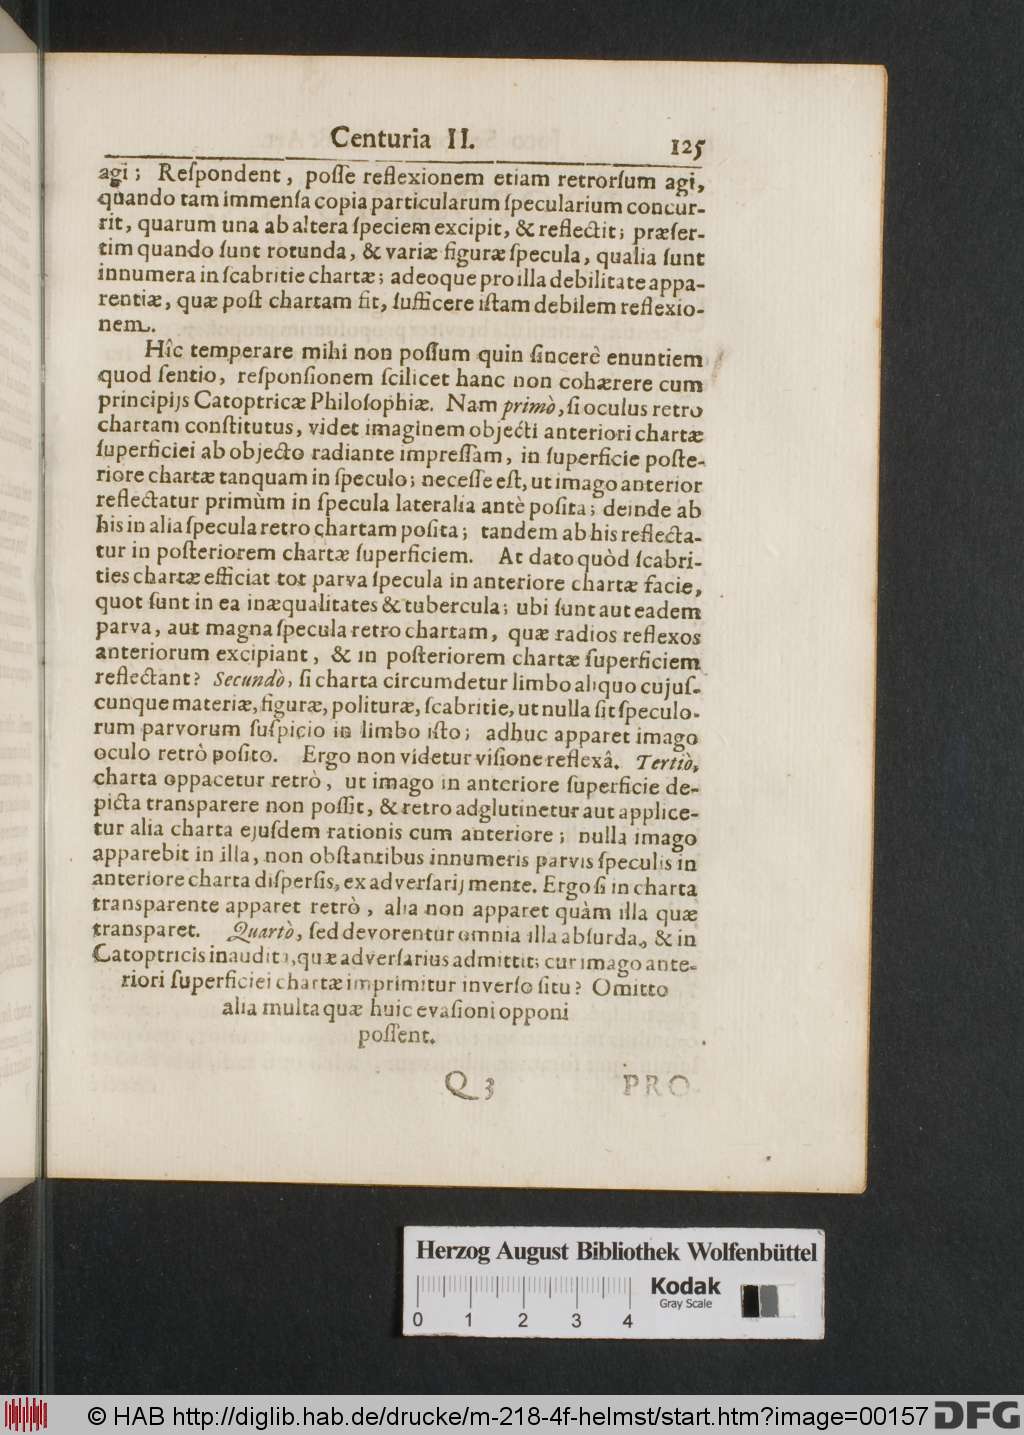 Centuria II. 125
agi; Reſpondent, poſſe reflexionem etiam retrorſum agi,
quando tam immenſa copia particularum ſpecularium concur-
rit, quarum una ab altera ſpeciem excipit, & reflectit; præſer-
tim quando ſunt rotunda, & variæ figuræ ſpecula, qualia ſunt
innumera in ſcabritie chartæ; adeoque pro illa debilitate appa-
rentiæ, quæ poſt chartam fit, ſufficere iſtam debilem reflexio-
nem.
Hîc temperare mihi non poſſum quin ſincerè enuntiem
quod ſentio, reſponſionem ſcilicet hanc non cohærere cum
principijs Catoptricæ Philoſophiæ. Nam primò, ſi oculus retro
chartam conſtitutus, videt imaginem objecti anteriori chartæ
ſuperficiei ab objecto radiante impreſſam, in ſuperficie poſte-
riore chartæ tanquam in ſpeculo; neceſſe eſt, ut imago anterior
reflectatur primùm in ſpecula lateralia antè poſita; deinde ab
his in alia ſpecula retro chartam poſita; tandem ab his reflecta-
tur in poſteriorem chartæ ſuperficiem. At dato quòd ſcabri-
ties chartæ efficiat tot parva ſpecula in anteriore chartæ facie,
quot ſunt in ea inæqualitates & tubercula; ubi ſunt aut eadem
parva, aut magna ſpecula retro chartam, quæ radios reflexos
anteriorum excipiant, & in poſteriorem chartæ ſuperficiem
reflectant? Secundò, ſi charta circumdetur limbo aliquo cujuſ-
cunque materiæ, figuræ, polituræ, ſcabritie, ut nulla ſit ſpeculo-
rum parvorum ſuſpicio in limbo iſto; adhuc apparet imago
oculo retrò poſito. Ergo non videtur viſione reflexâ. Tertiò,
charta oppacetur retrò, ut imago in anteriore ſuperficie de-
picta transparere non poſſit, & retro adglutinetur aut applice-
tur alia charta ejuſdem rationis cum anteriore; nulla imago
apparebit in illa, non obſtantibus innumeris parvis ſpeculis in
anteriore charta diſperſis, ex adverſarij mente. Ergo ſi in charta
transparente apparet retrò, alia non apparet quàm illa quæ
transparet. Quartò, ſed devorentur omnia illa abſurda, & in
Catoptricis inaudita, quæ adverſarius admittit; cur imago ante-
riori ſuperficiei chartæ imprimitur inverſo ſitu? Omitto
alia multa quæ huic evaſioni opponi
poſſent.
Q 3 PRO
Herzog August Bibliothek Wolfenbüttel
Kodak
Gray Scale
0 1 2 3 4
© HAB http://diglib.hab.de/drucke/m-218-4f-helmst/start.htm?image=00157 DFG